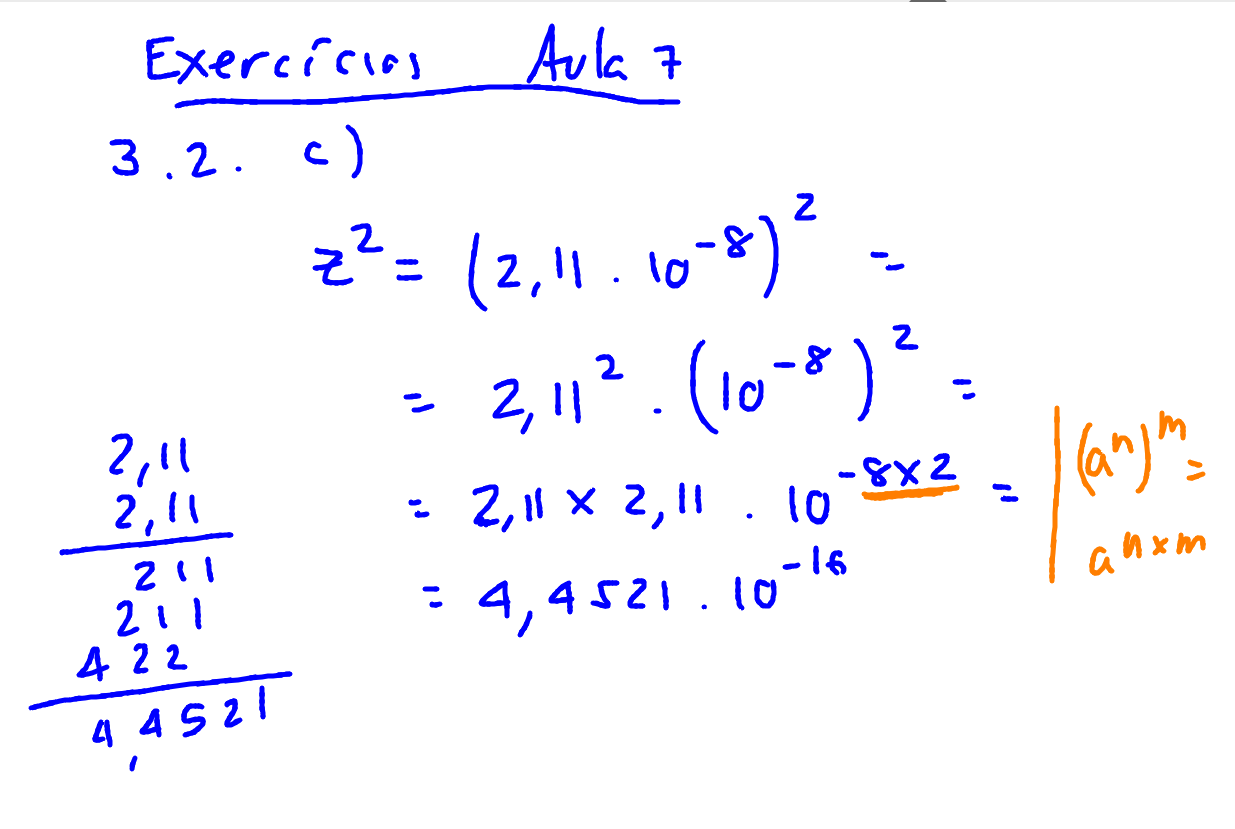 Exercícios Aula 7
3.2. c)
z² = (2,11 . 10⁻⁸)² =
= 2,11² . (10⁻⁸)² =
= 2,11 × 2,11 . 10⁻⁸ˣ² =
= 4,4521 . 10⁻¹⁶
(aⁿ)ᵐ =
aⁿˣᵐ
2,11
2,11
211
211
422
4,4521